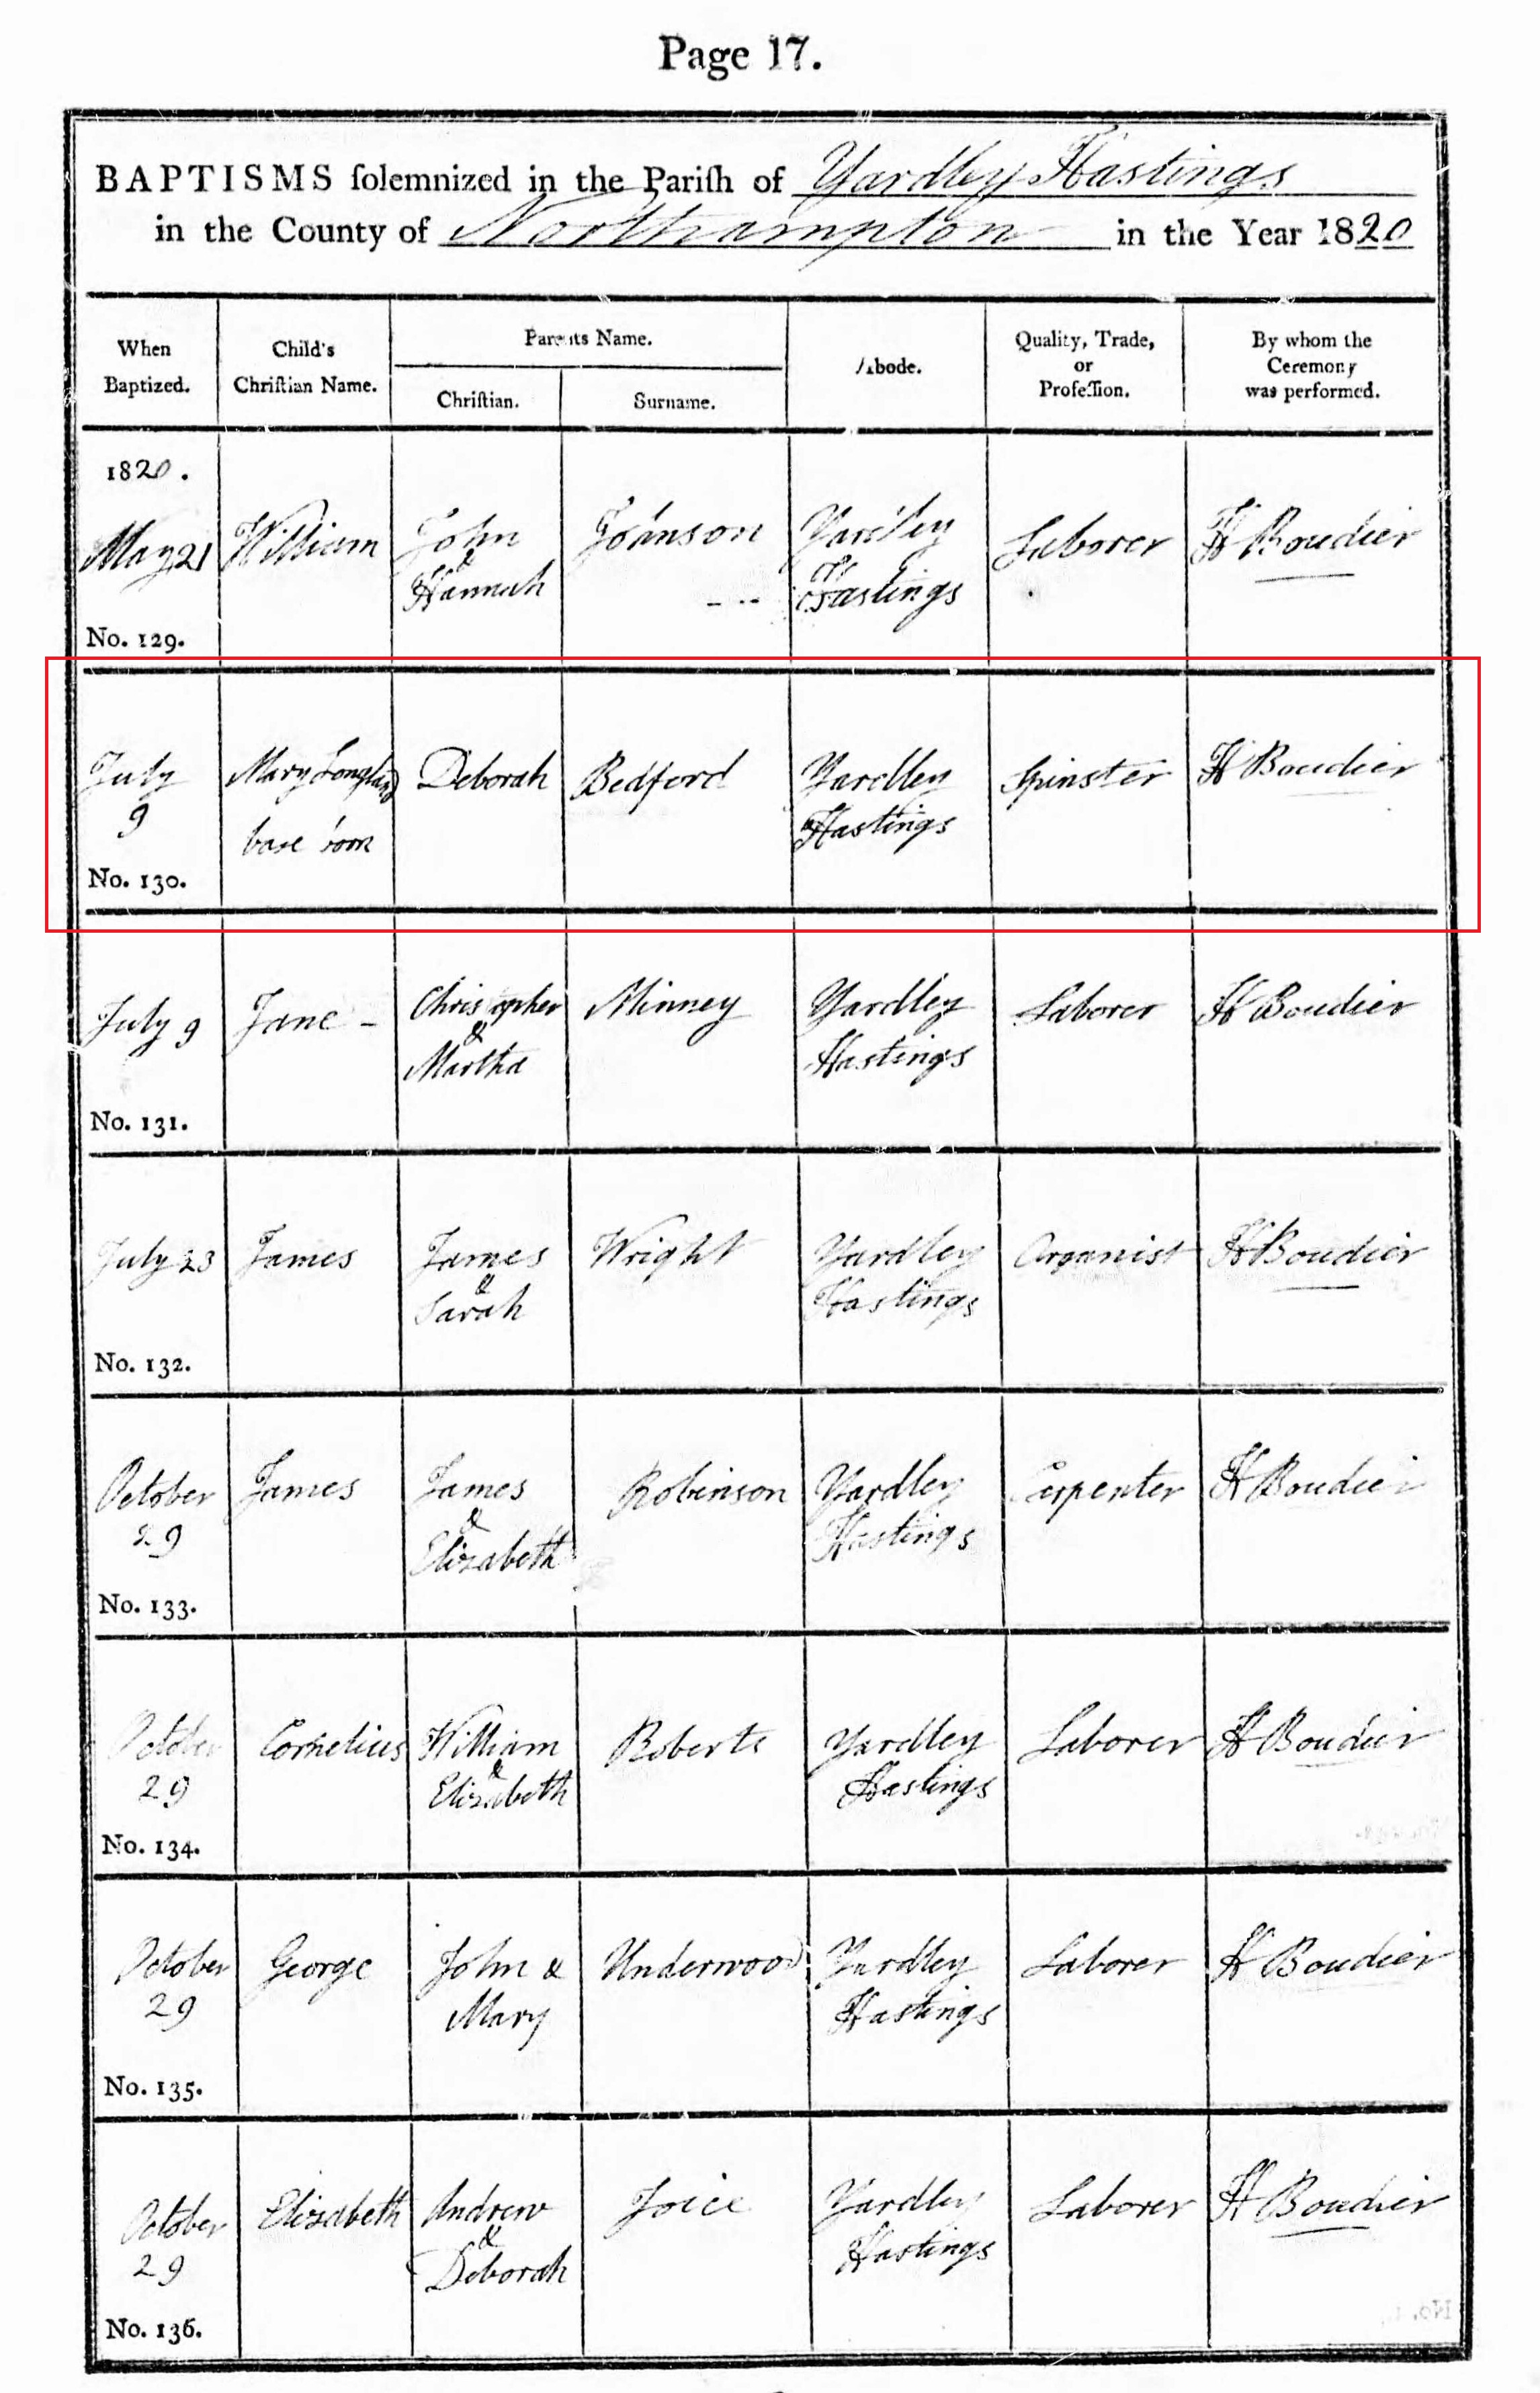 Page 17.
BAPTISMS ſolemnized in the Pariſh of Yardley Hastings
in the County of Northampton in the Year 1820
When Baptized. Child's Chriſtian Name. Parents Name. Chriſtian. Surname. Abode. Quality, Trade, or Profeſſion. By whom the Ceremony was performed.
1820.
May 21 William John & Hannah Johnson Yardley Hastings Laborer H Boudier
No. 129.
July 9 Mary Longland base born Deborah Bedford Yardley Hastings Spinster H Boudier
No. 130.
July 9 Jane - Christopher & Martha Minney Yardley Hastings Laborer H Boudier
No. 131.
July 23 James James & Sarah Wright Yardley Hastings Organist H Boudier
No. 132.
October 29 James James & Elizabeth Robinson Yardley Hastings Carpenter H Boudier
No. 133.
October 29 Cornelius William & Elizabeth Roberts Yardley Hastings Laborer H Boudier
No. 134.
October 29 George John & Mary Underwood Yardley Hastings Laborer H Boudier
No. 135.
October 29 Elizabeth Andrew & Deborah Joice Yardley Hastings Laborer H Boudier
No. 136.